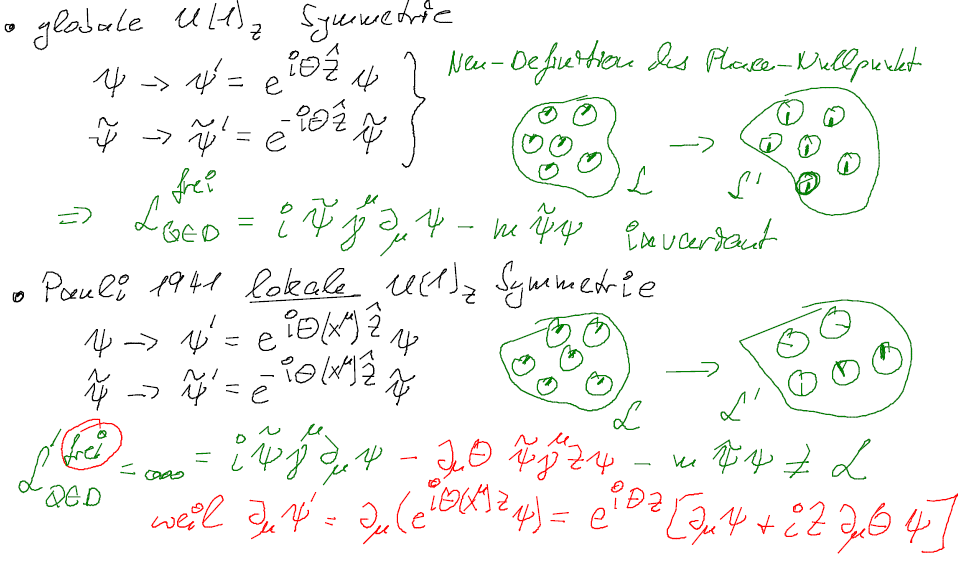 • globale U(1)_z Symmetrie
ψ → ψ' = e^{iθẑ} ψ
ψ̃ → ψ̃' = e^{-iθẑ} ψ̃
Neu-Definition des Phase-Nullpunkt
L → L'
⇒ L_{QED}^{frei} = i ψ̃ γ^μ ∂_μ ψ - m ψ̃ψ invariant
• Pauli 1941 lokale U(1)_z Symmetrie
ψ → ψ' = e^{iθ(x^μ)ẑ} ψ
ψ̃ → ψ̃' = e^{-iθ(x^μ)ẑ} ψ̃
L → L'
L'_{QED}^{frei} = ... = i ψ̃ γ^μ ∂_μ ψ - ∂_μθ ψ̃ γ^μ z ψ - m ψ̃ψ ≠ L
weil ∂_μ ψ' = ∂_μ (e^{iθ(x^μ)z} ψ) = e^{iθz} [∂_μ ψ + i z ∂_μθ ψ]